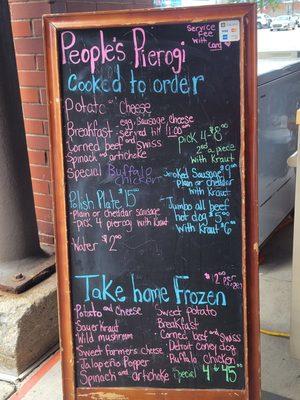 People's Pierogi
Service
Fee
with Card
Cooked to order
Potato and Cheese
Breakfast egg, sausage, cheese
served til 11:00am
Corned beef and Swiss
Spinach and artichoke
Special Buffalo
chicken
Pick 4 - 8.00
2nd a piece
with Kraut
Smoked Sausage $9.00
plain or cheddar
with Kraut
Jumbo all beef
hot dog $5.00
with Kraut $6.00
Polish Plate $15.00
-Plain or cheddar sausage
-pick 4 pierogi with Kraut
Water $2.00
Take home Frozen
$12 per
Potato and Cheese
Sauer Kraut
Wild mushroom
Sweet farmers cheese
Jalapeño Popper
Spinach and artichoke
Sweet potato
Breakfast
Corned beef and swiss
Detroit coney dog
Buffalo chicken
Special 4 to 45.00